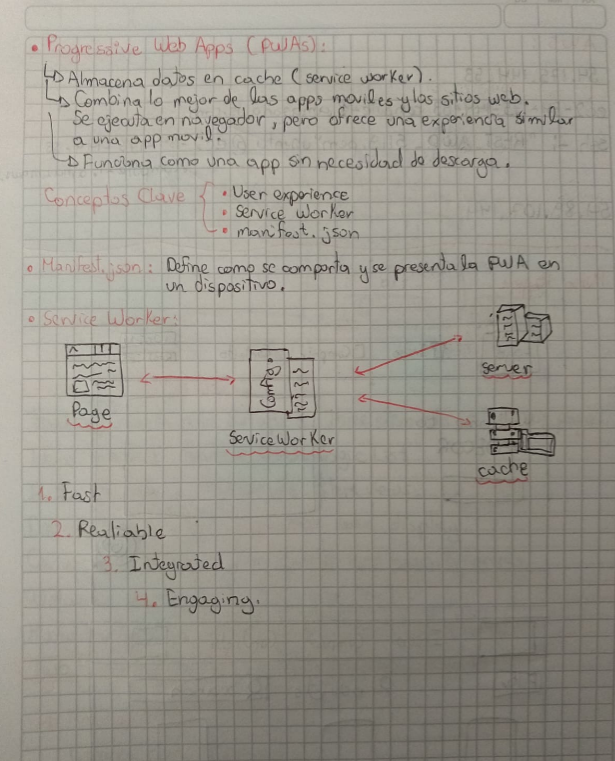 • Progressive Web Apps (PWAs):
↳ Almacena datos en cache (service worker).
↳ Combina lo mejor de las apps moviles y los sitios web.
Se ejecuta en navegador, pero ofrece una experiencia similar
a una app movil.
↳ Funciona como una app sin necesidad de descarga.
Conceptos Clave { • User experience
• Service Worker
• manifest.json
• Manifest.json: Define como se comporta y se presenta la PWA en
un dispositivo.
• Service Worker:
Page
Service Worker
server
cache
1. Fast
2. Realiable
3. Integrated
4. Engaging.